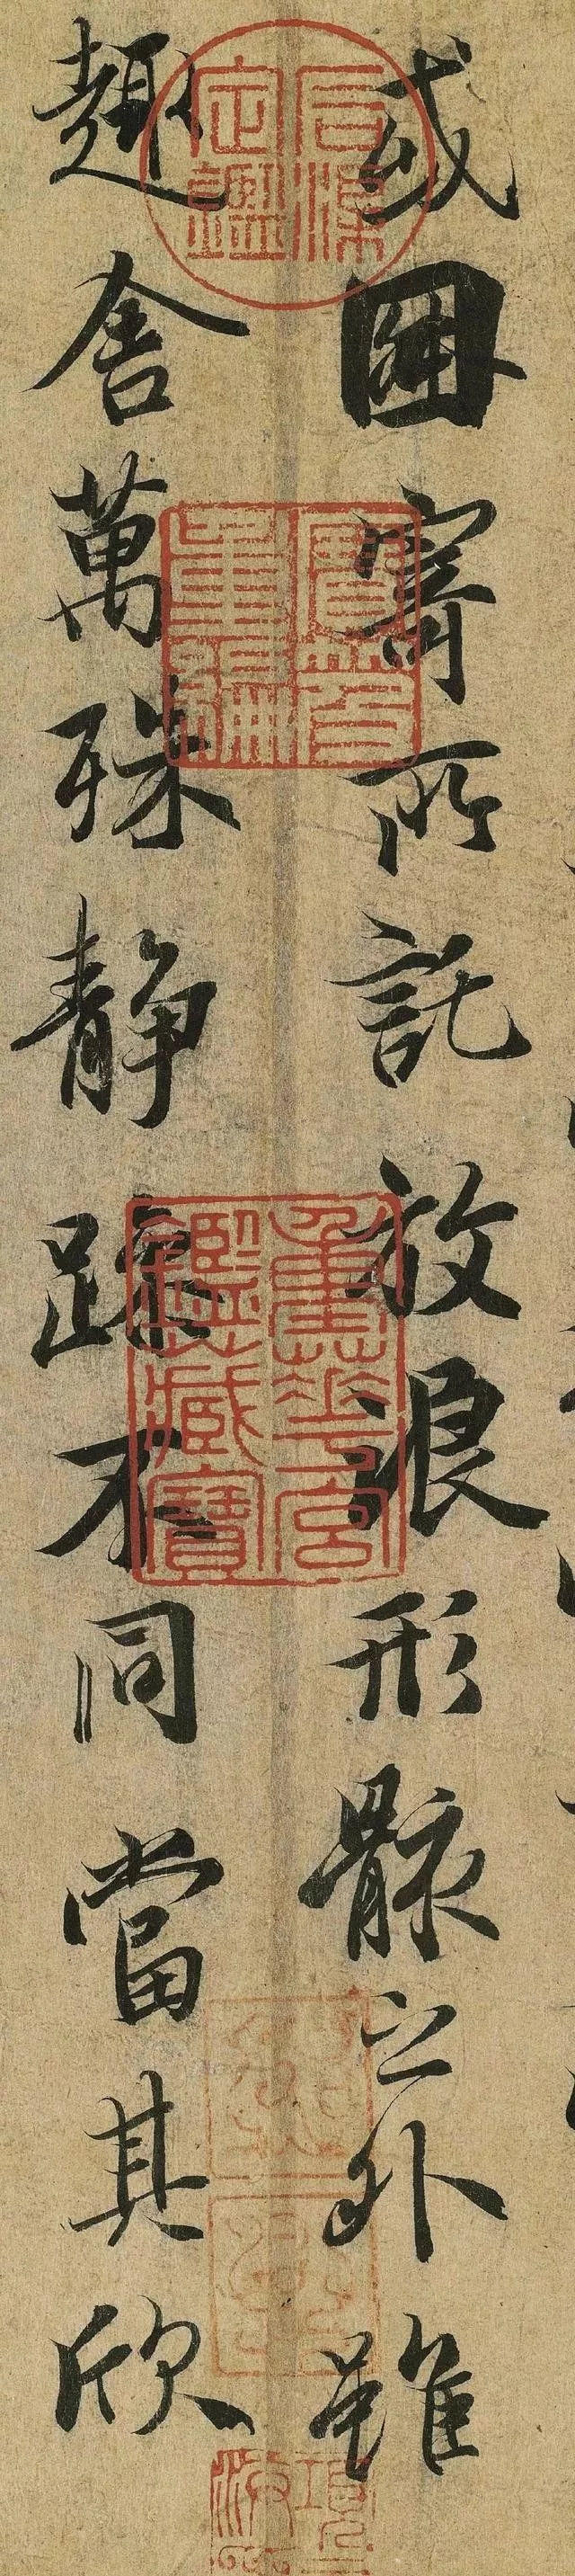 或因寄所託放浪形骸之外雖
趣舍萬殊静躁不同當其欣
石渠定鑑
寶笈重編
重華宮鑑藏寶